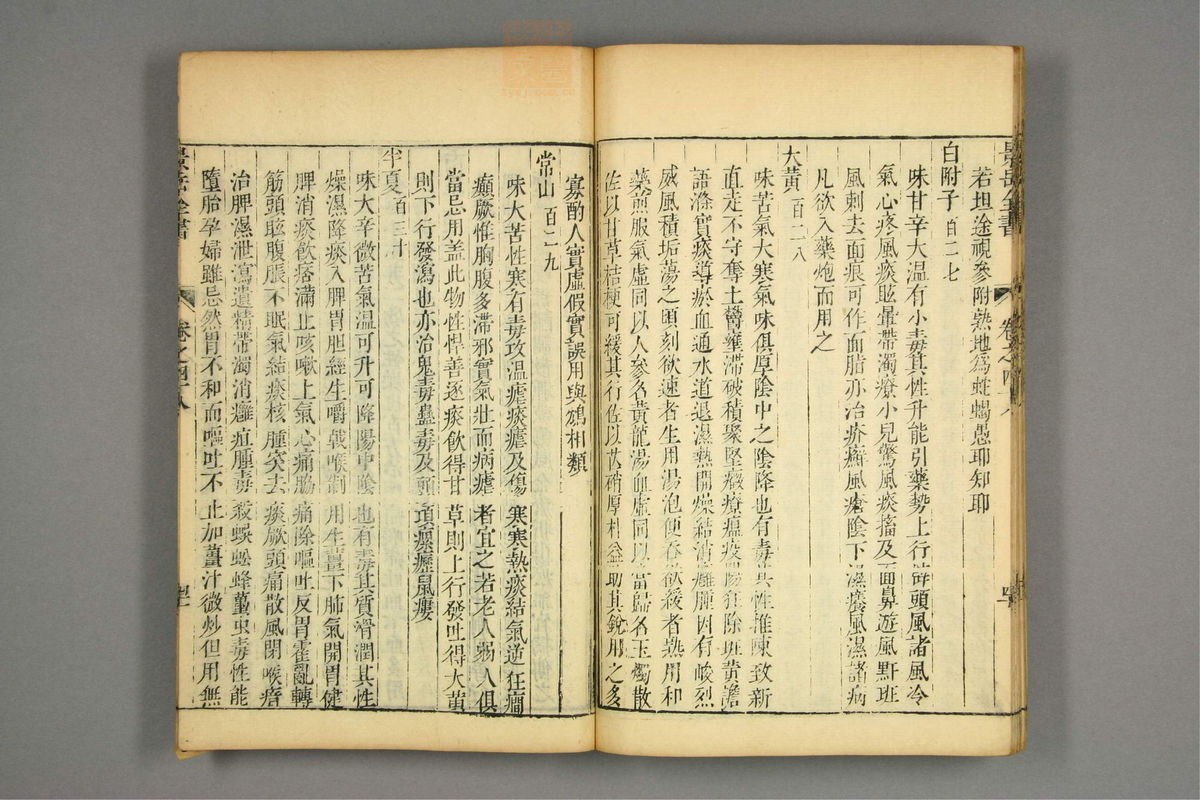 景岳全書 卷之四十八
若坦途視參附熱地爲蛇蝎愚耶知耶
白附子 百二七
味甘辛大温有小毒其性升能引藥勢上行辟頭風諸風冷
氣心疼風痰眩暈帶濁療小兒驚風痰搐及面鼻遊風䵟班
風刺去面痕可作面脂亦治疥癬風瘡陰下濕癢風濕諸病
凡欲入藥炮而用之
大黃 百二八
味苦氣大寒氣味俱厚陰中之陰降也有毒其性推陳致新
直走不守奪土鬱壅滯破積聚堅癥療瘟疫陽狂除斑黃譫
語滌實痰導瘀血通水道退濕熱開燥結消癰腫因有峻烈
威風積垢蕩之頃刻欲速者生用湯泡便吞欲緩者熟用和
藥煎服氣虛同以人參名黃龍湯血虛同以當歸名玉燭散
佐以甘草桔梗可緩其行佐以芒硝厚朴益助其銳用之多
寡酌人實虛假實誤用與鴆相類
常山 百二九
味大苦性寒有毒攻温瘧痰瘧及傷寒寒熱痰結氣逆狂癎
癲厥惟胸腹多滯邪實氣壯而病瘧者宜之若老人弱人俱
當忌用盖此物性悍善逐痰飲得甘草則上行發吐得大黃
則下行發瀉也亦治鬼毒蠱毒及頭項瘰癧鼠瘻
半夏 百三十
味大辛微苦氣温可升可降陽中陰也有毒其質滑潤其性
燥濕降痰入脾胃胆經生嚼戟喉制用生薑下肺氣開胃健
脾消痰飲痞滿止咳嗽上氣心痛脇痛除嘔吐反胃霍亂轉
筋頭眩腹脹不眠氣結痰核腫突去痰厥頭痛散風閉喉瘖
治脾濕泄瀉遺精帶濁消癰疽腫毒殺蜈蚣蜂蠆虫毒性能
墮胎孕婦雖忌然胃不和而嘔吐不止加薑汁微炒但用無
景岳全書 卷之四十八